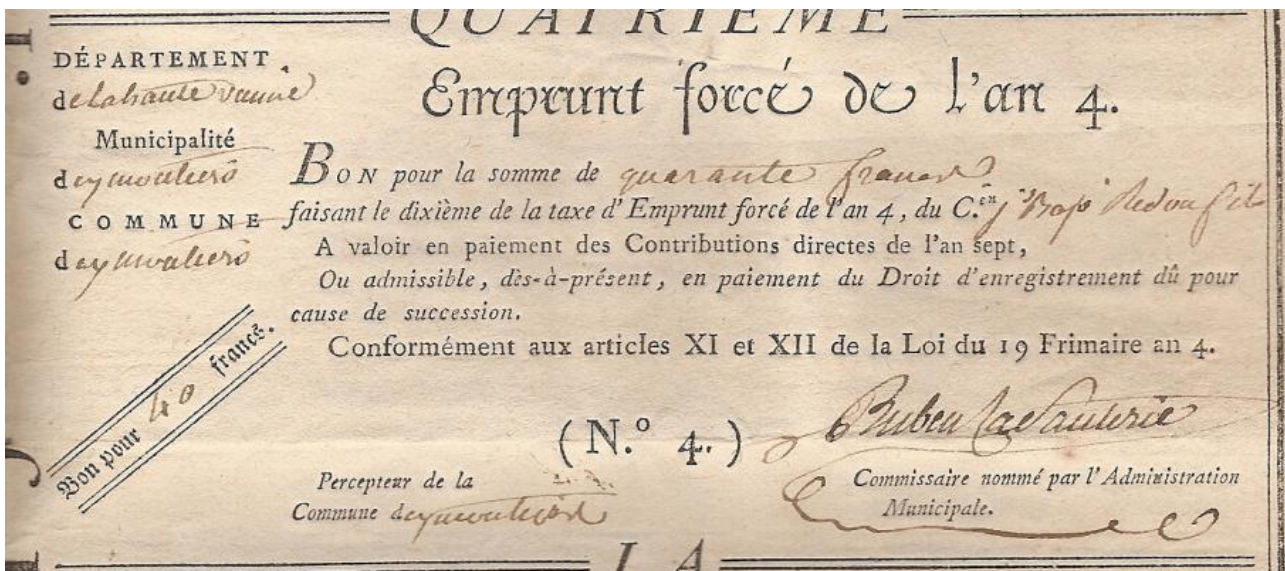 QUATRIÈME
DÉPARTEMENT
de la haute vienne
Emprunt forcé de l'an 4.
Municipalité
d'eymoutiers
BON pour la somme de quarante francs
COMMUNE
faisant le dixième de la taxe d'Emprunt forcé de l'an 4, du C.en
d'eymoutiers
A valoir en paiement des Contributions directes de l'an sept,
Ou admissible, dès-à-présent, en paiement du Droit d'enregistrement dû pour
cause de succession.
Conformément aux articles XI et XII de la Loi du 19 Frimaire an 4.
Bon pour 40 francs.
(N.° 4.)
Percepteur de la
Commune d'eymoutiers
Commissaire nommé par l'Administration
Municipale.
LA